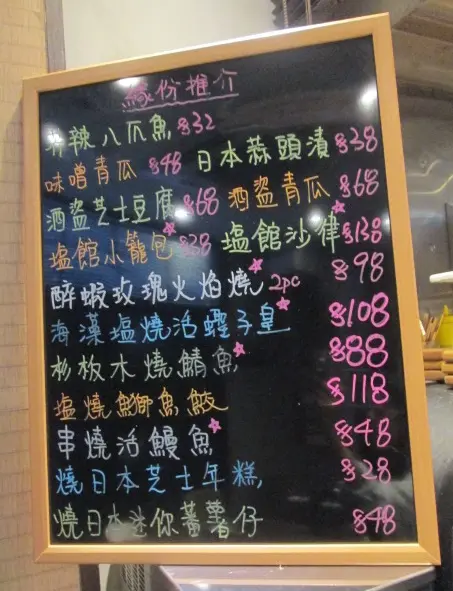 緣份推介
麻辣八爪魚 $32
日本蒜頭漬 $38
味噌青瓜 $48
酒盜青瓜 $68
酒盜芝士豆腐 $68
塩館沙律 $138
塩館小籠包 $38
醉蝦玫瑰火焰燒 2pc $98
海藻塩燒活蟶子皇 $108
杉板木燒鯖魚 $88
塩燒鰤魚鮫 $118
串燒活鰻魚 $48
燒日本芝士年糕 $28
燒日本迷你蕃薯仔 $48